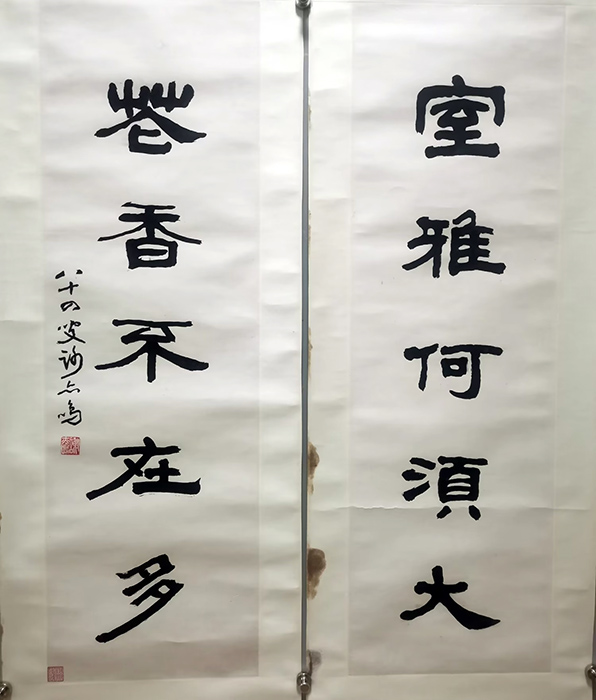 室雅何須大
花香不在多
八十四叟謝六鳴